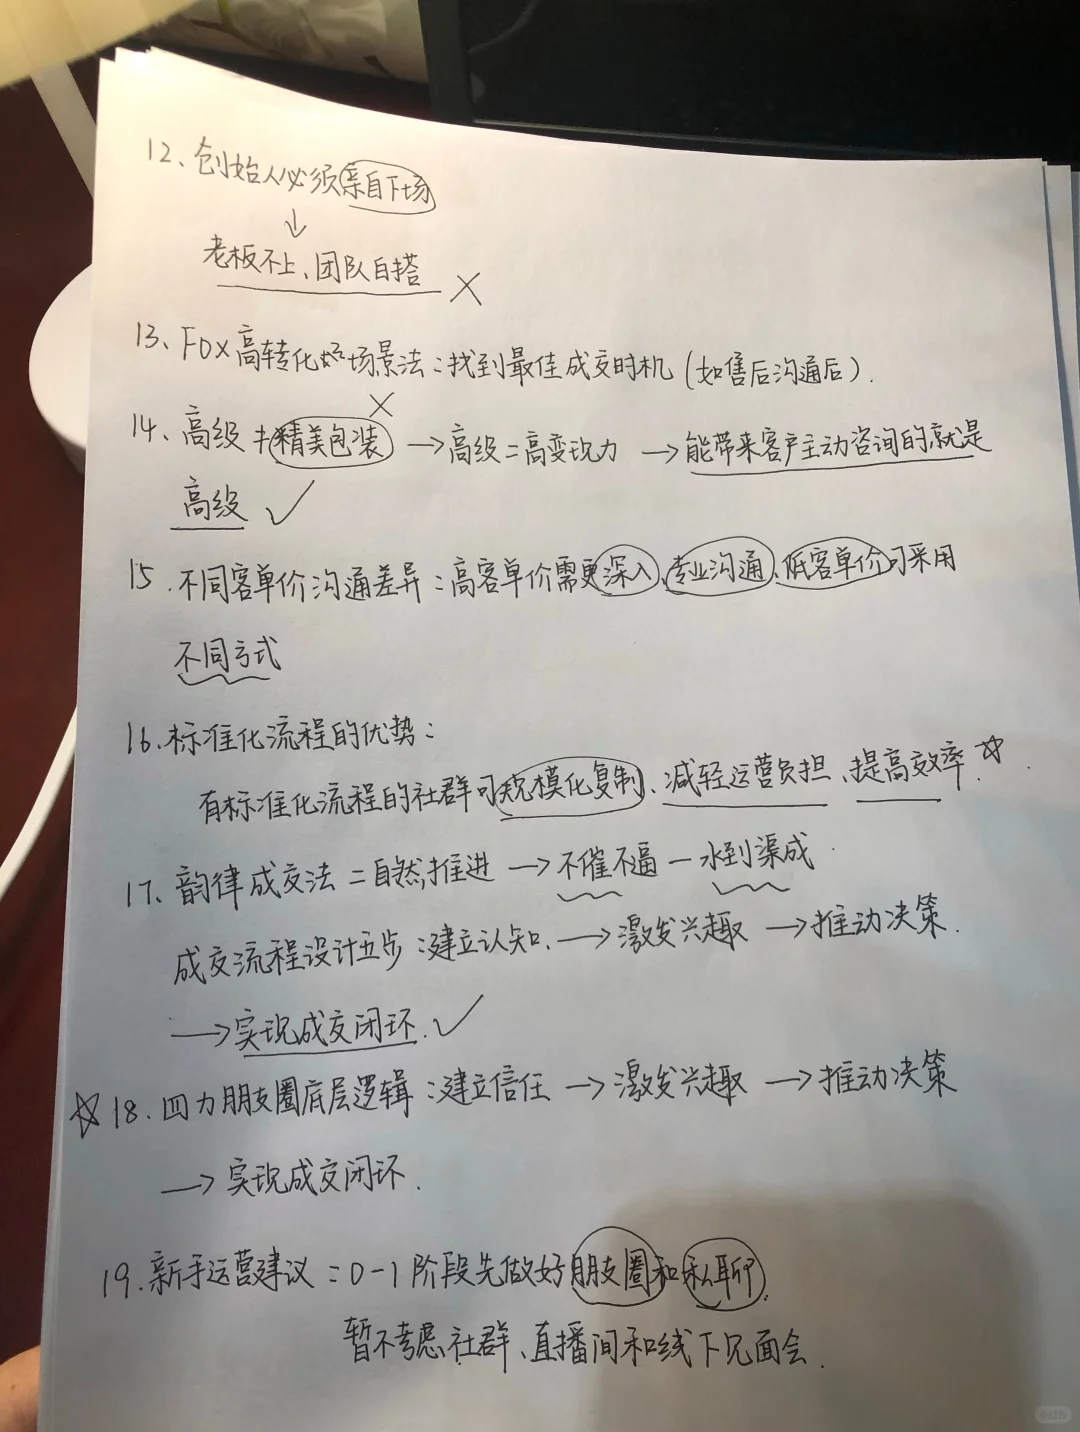 12、创始人必须亲自下场
↓
老板不上、团队自搭 ×
13、Fox高转化 场景法：找到最佳成交时机（如售后沟通后）.
14、高级≠精美包装 × →高级=高变现力 →能带来客户主动咨询的就是
高级 ✓
15.不同客单价沟通差异：高客单价需更深入、专业沟通、低客单价可采用
不同方式
16.标准化流程的优势：
有标准化流程的社群可规模化复制、减轻运营负担、提高效率.☆
17、韵律成交法=自然推进→不催不逼—水到渠成.
成交流程设计五步：建立认知.→激发兴趣→推动决策.
→实现成交闭环.✓
☆18.四力朋友圈底层逻辑：建立信任→激发兴趣→推动决策
→实现成交闭环.
19.新手运营建议：0-1阶段先做好朋友圈和私聊.
暂不考虑社群、直播间和线下见面会.